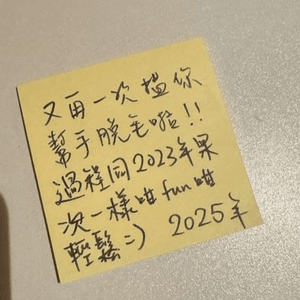 又再一次搵你
幫手脱毛啦!!
過程同2023年果
次一樣咁fun咁
輕鬆=) 2025年